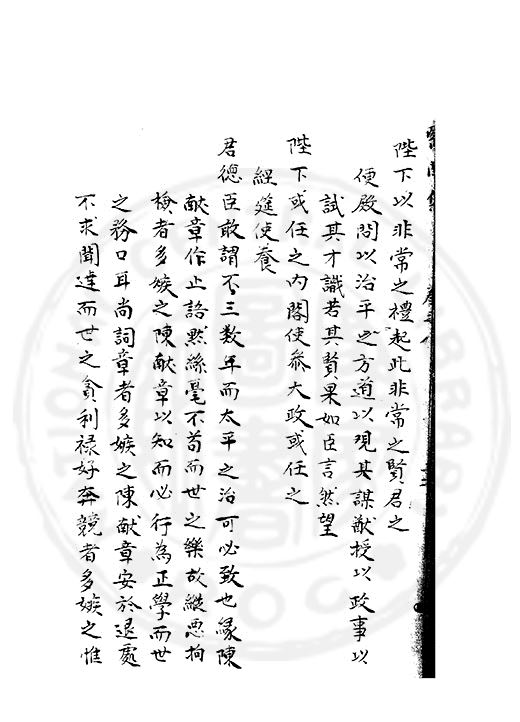 陛下以非常之禮起此非常之賢君之
便殿問以治平之方道以現其謀猷授以政事以
試其才識若其賢果如臣言然望
陛下或任之內閣使叅大政或任之
經筵使養
君德臣敢謂不三数年而太平之治可必致也緣陳
献章作止語黙絲毫不苟而世之樂放縱惡拘
檢者多嫉之陳献章以知而必行為正學而世
之務口耳尚詞章者多嫉之陳献章安於退處
不求聞達而世之貪利禄好奔競者多嫉之惟